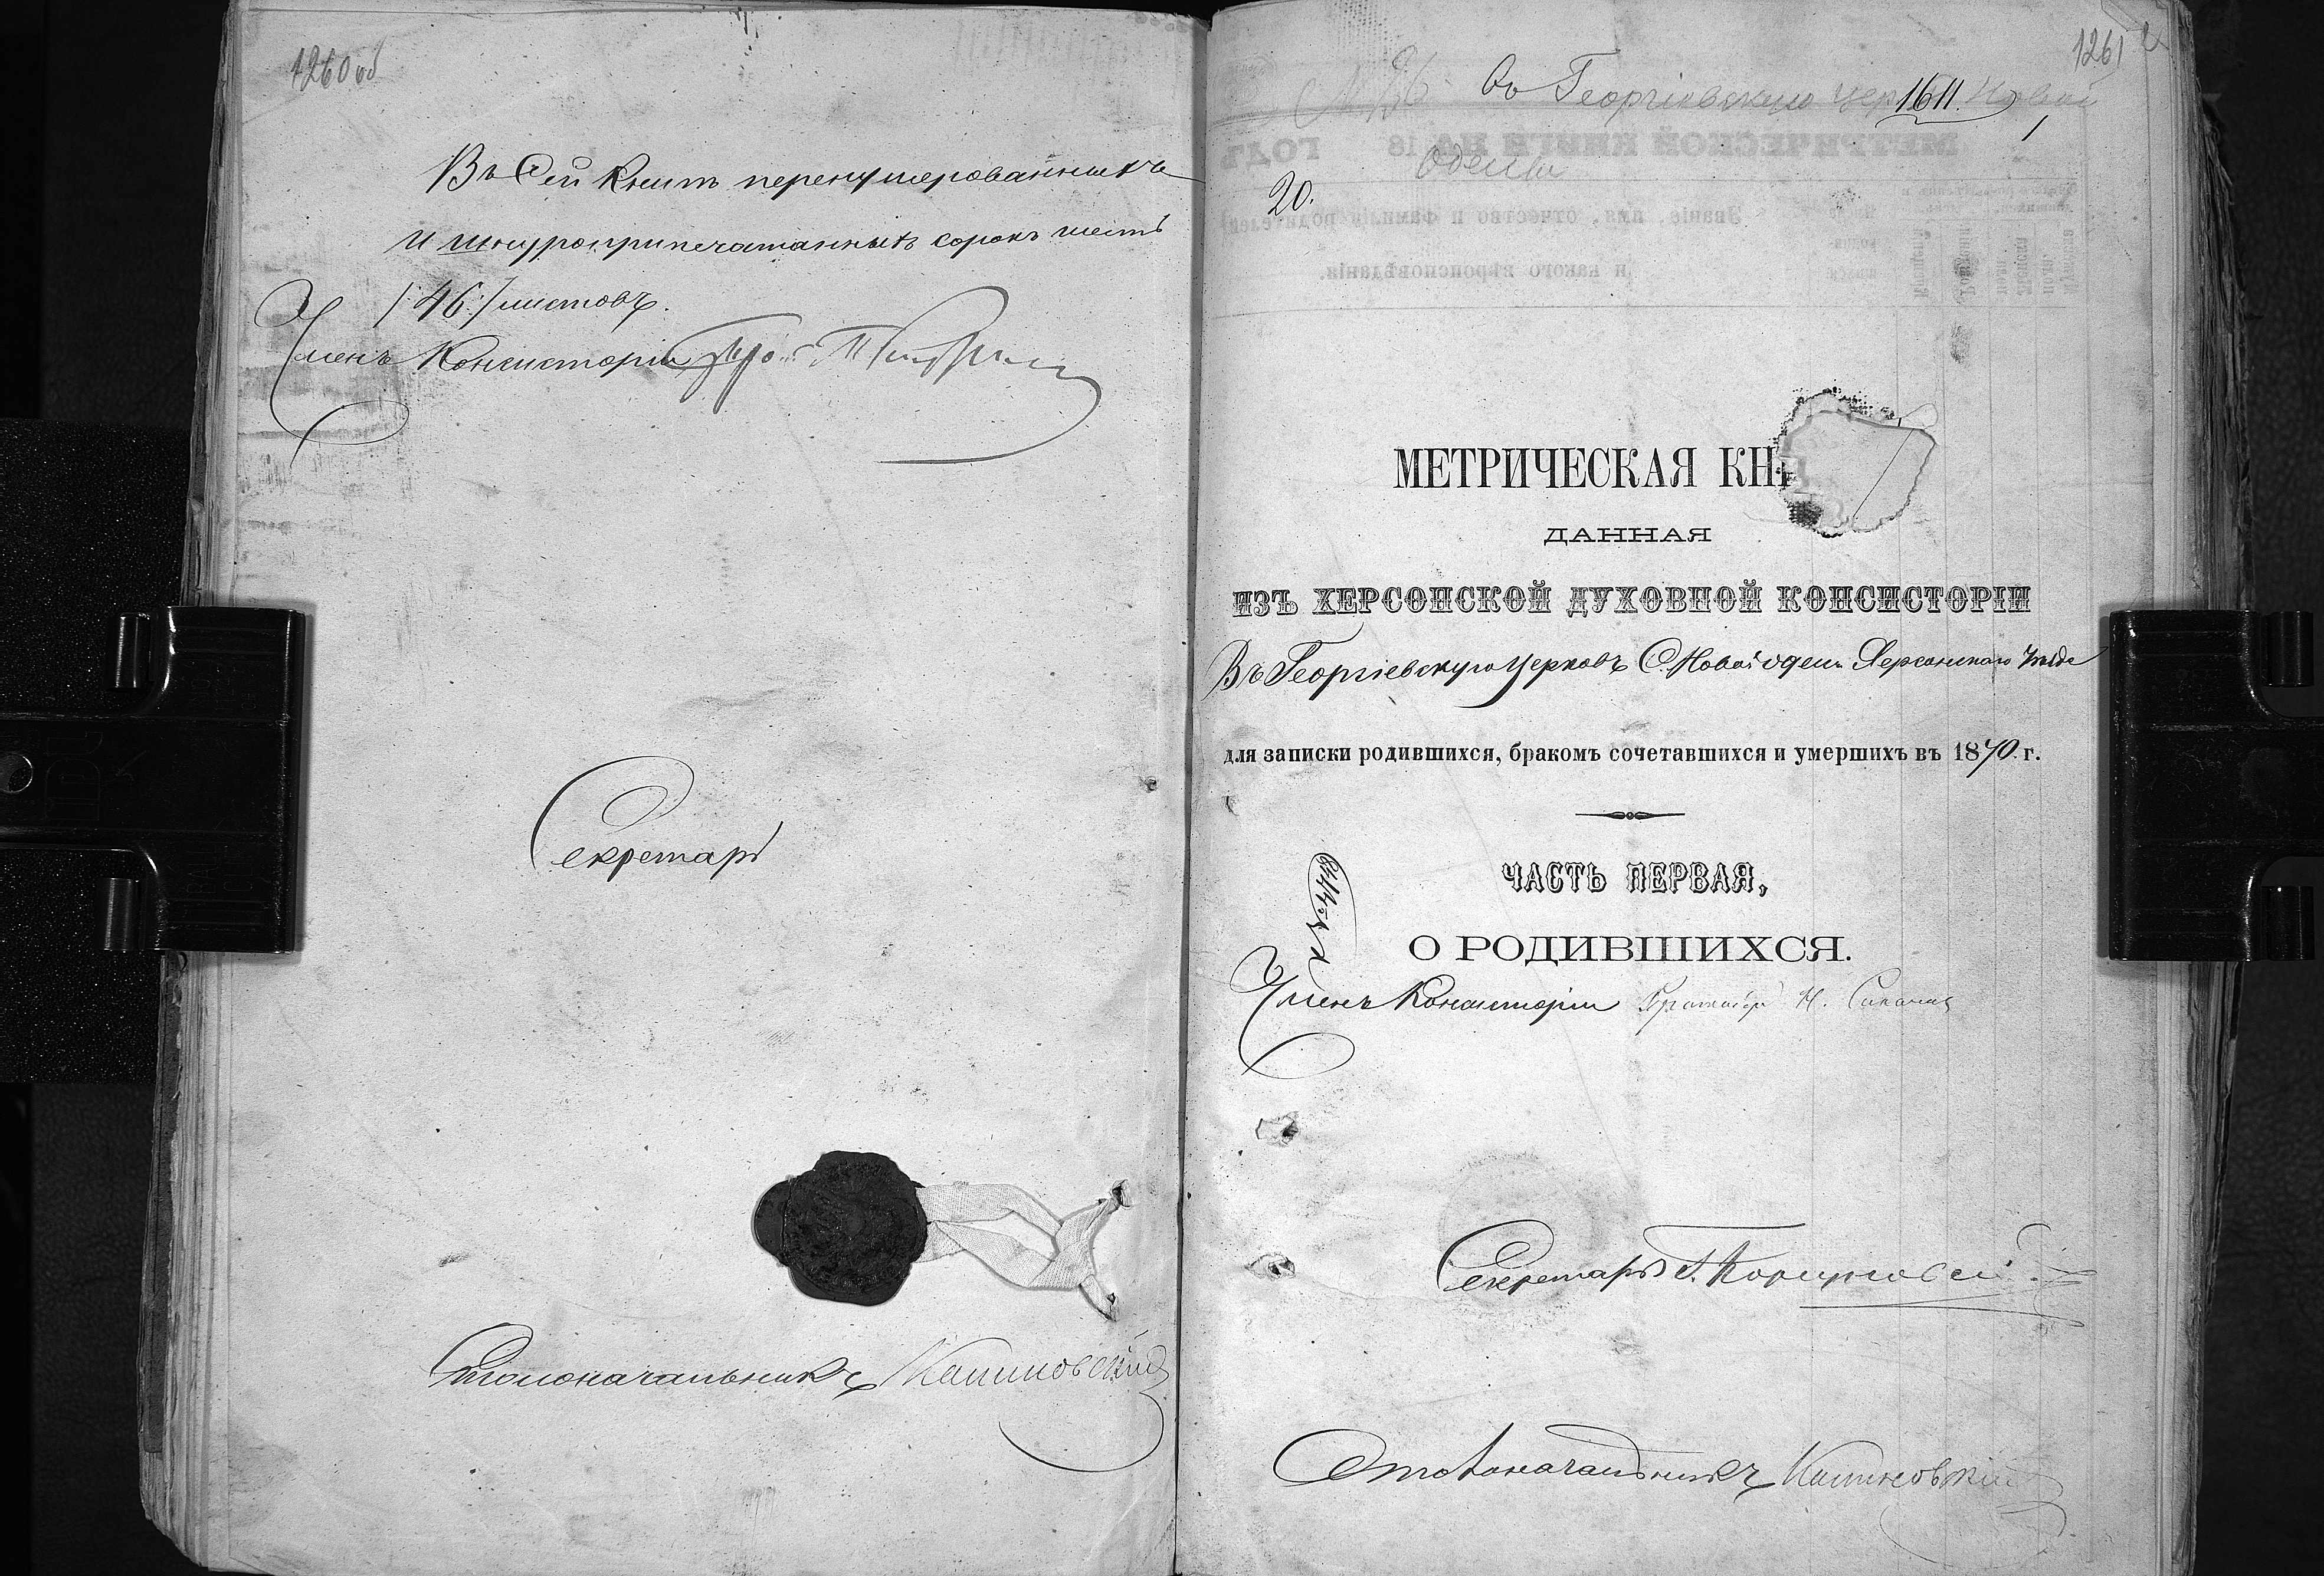 1260 об
Въ Сей Книгѣ перенумерованныхъ
и шнуроприпечатанныхъ сорокъ шесть
/:46:/ листовъ.
Членъ Консисторіи
Секретарь
Столоначальникъ Калиновскій
1261
Въ Георгіевскую цер 1611. Новой
Одессы
1
20.
МЕТРИЧЕСКОЙ КНИГИ НА 18 ГОДЪ
Званіе, имя, отчество и фамилія родителей
и какого вѣроисповѣданія.
МЕТРИЧЕСКАЯ КНИ
ДАННАЯ
ИЗЪ ХЕРСОНСКОЙ ДУХОВНОЙ КОНСИСТОРІИ
Въ Георгіевскую Церковь С. Новой Одессы Херсонскаго Уѣзда
для записки родившихся, бракомъ сочетавшихся и умершихъ въ 1870. г.
ЧАСТЬ ПЕРВАЯ,
О РОДИВШИХСЯ.
Членъ Консисторіи
Секретарь
Столоначальникъ Калиновскій